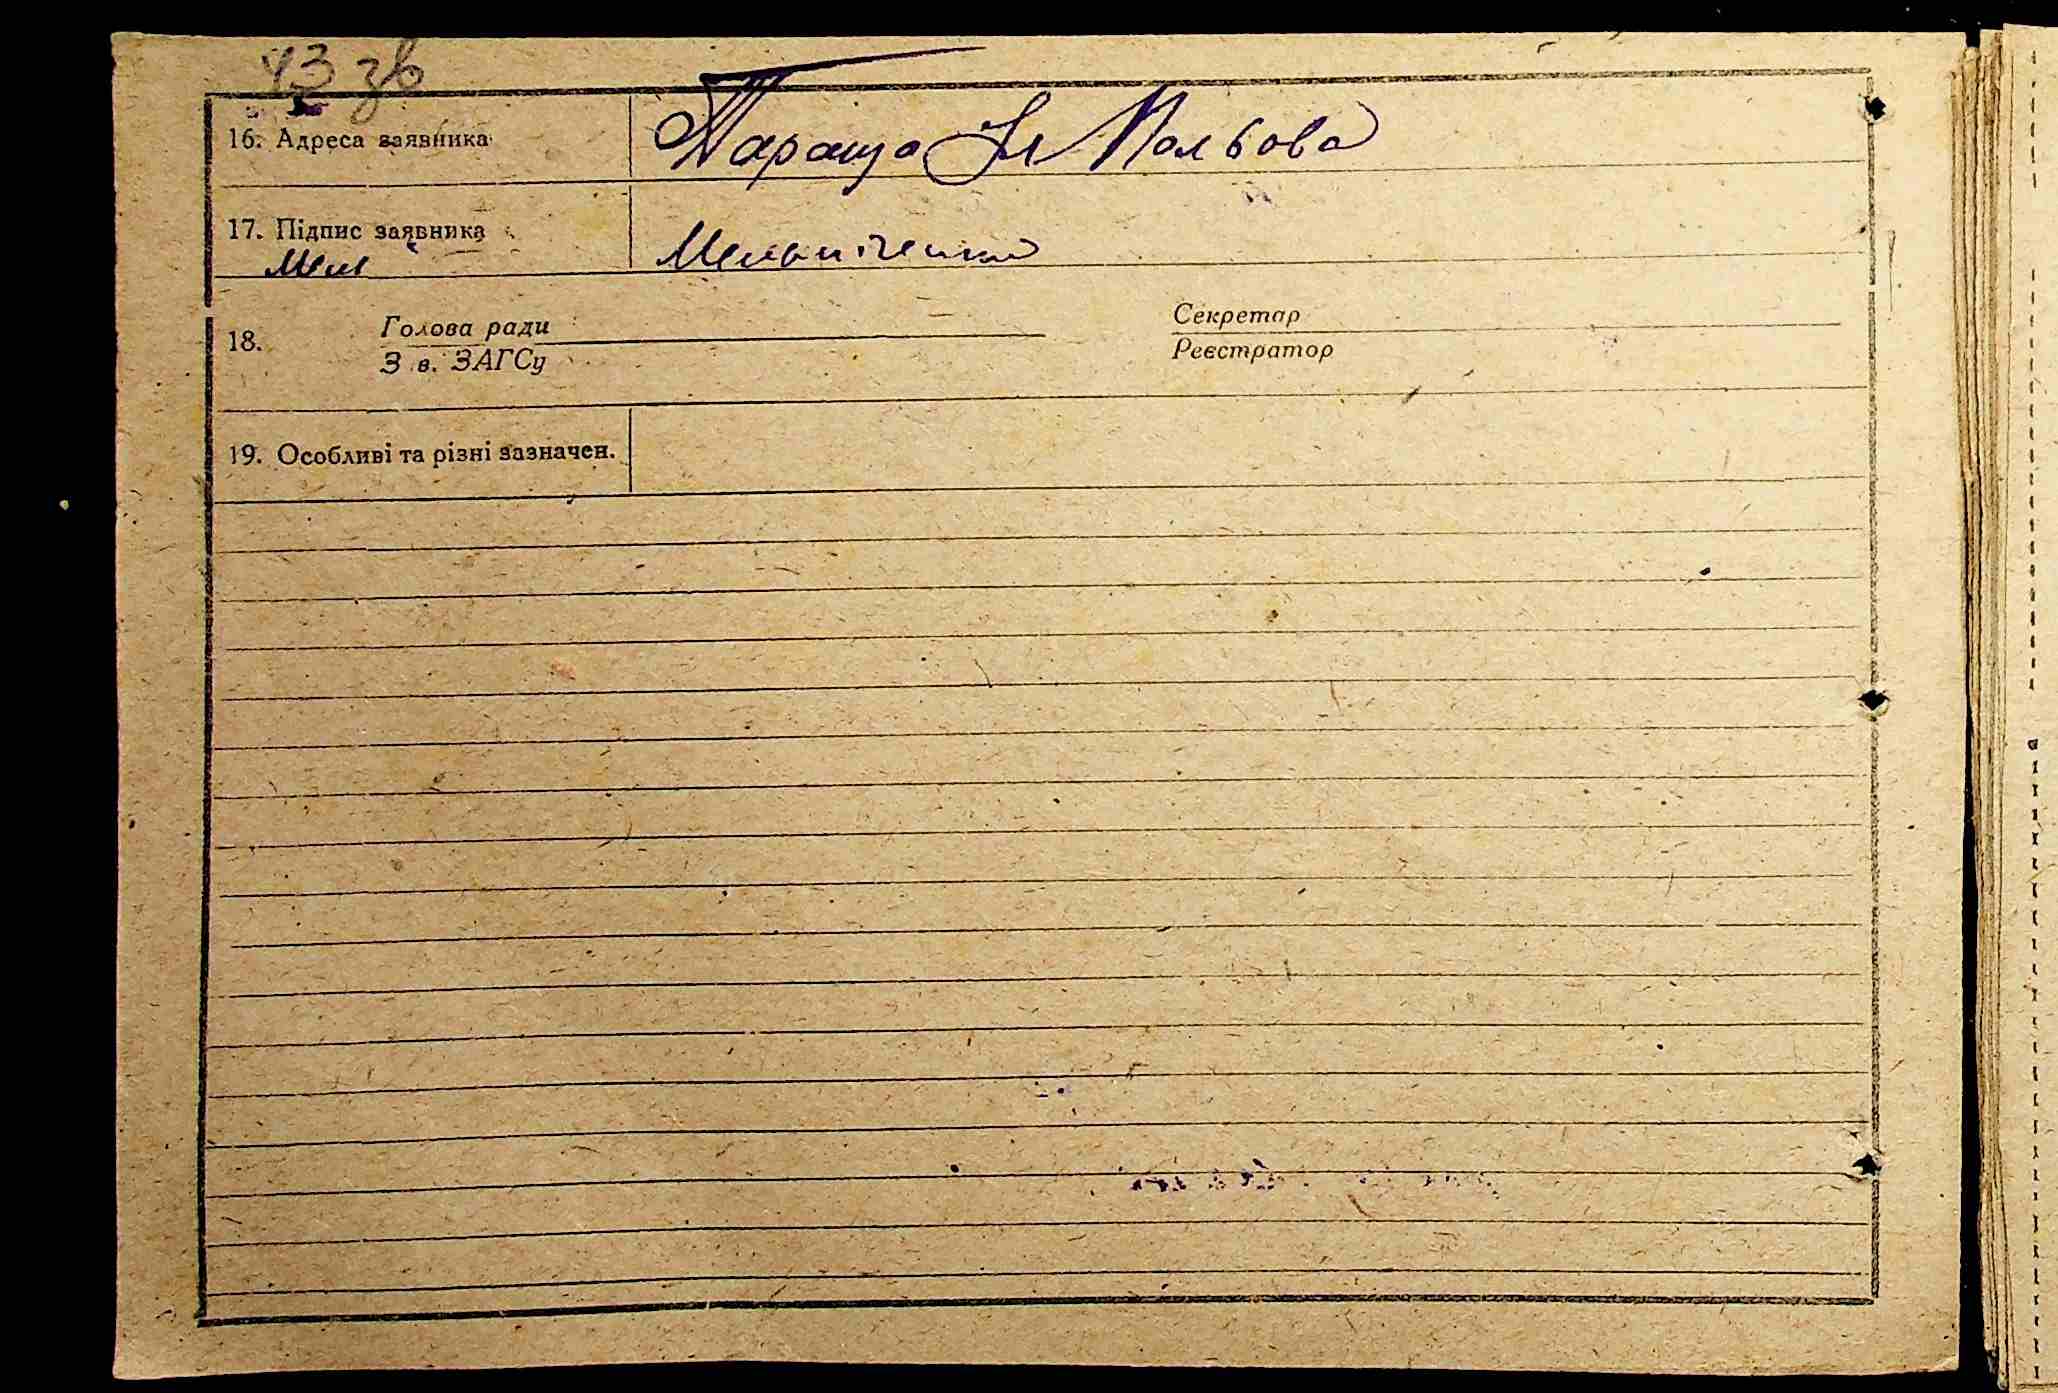 43 зв
16. Адреса заявника Тараща Ул Польова
17. Підпис заявника Мельніченко
Мел
18. Голова ради Секретар
З в. ЗАГСу Реєстратор
19. Особливі та різні зазначен.